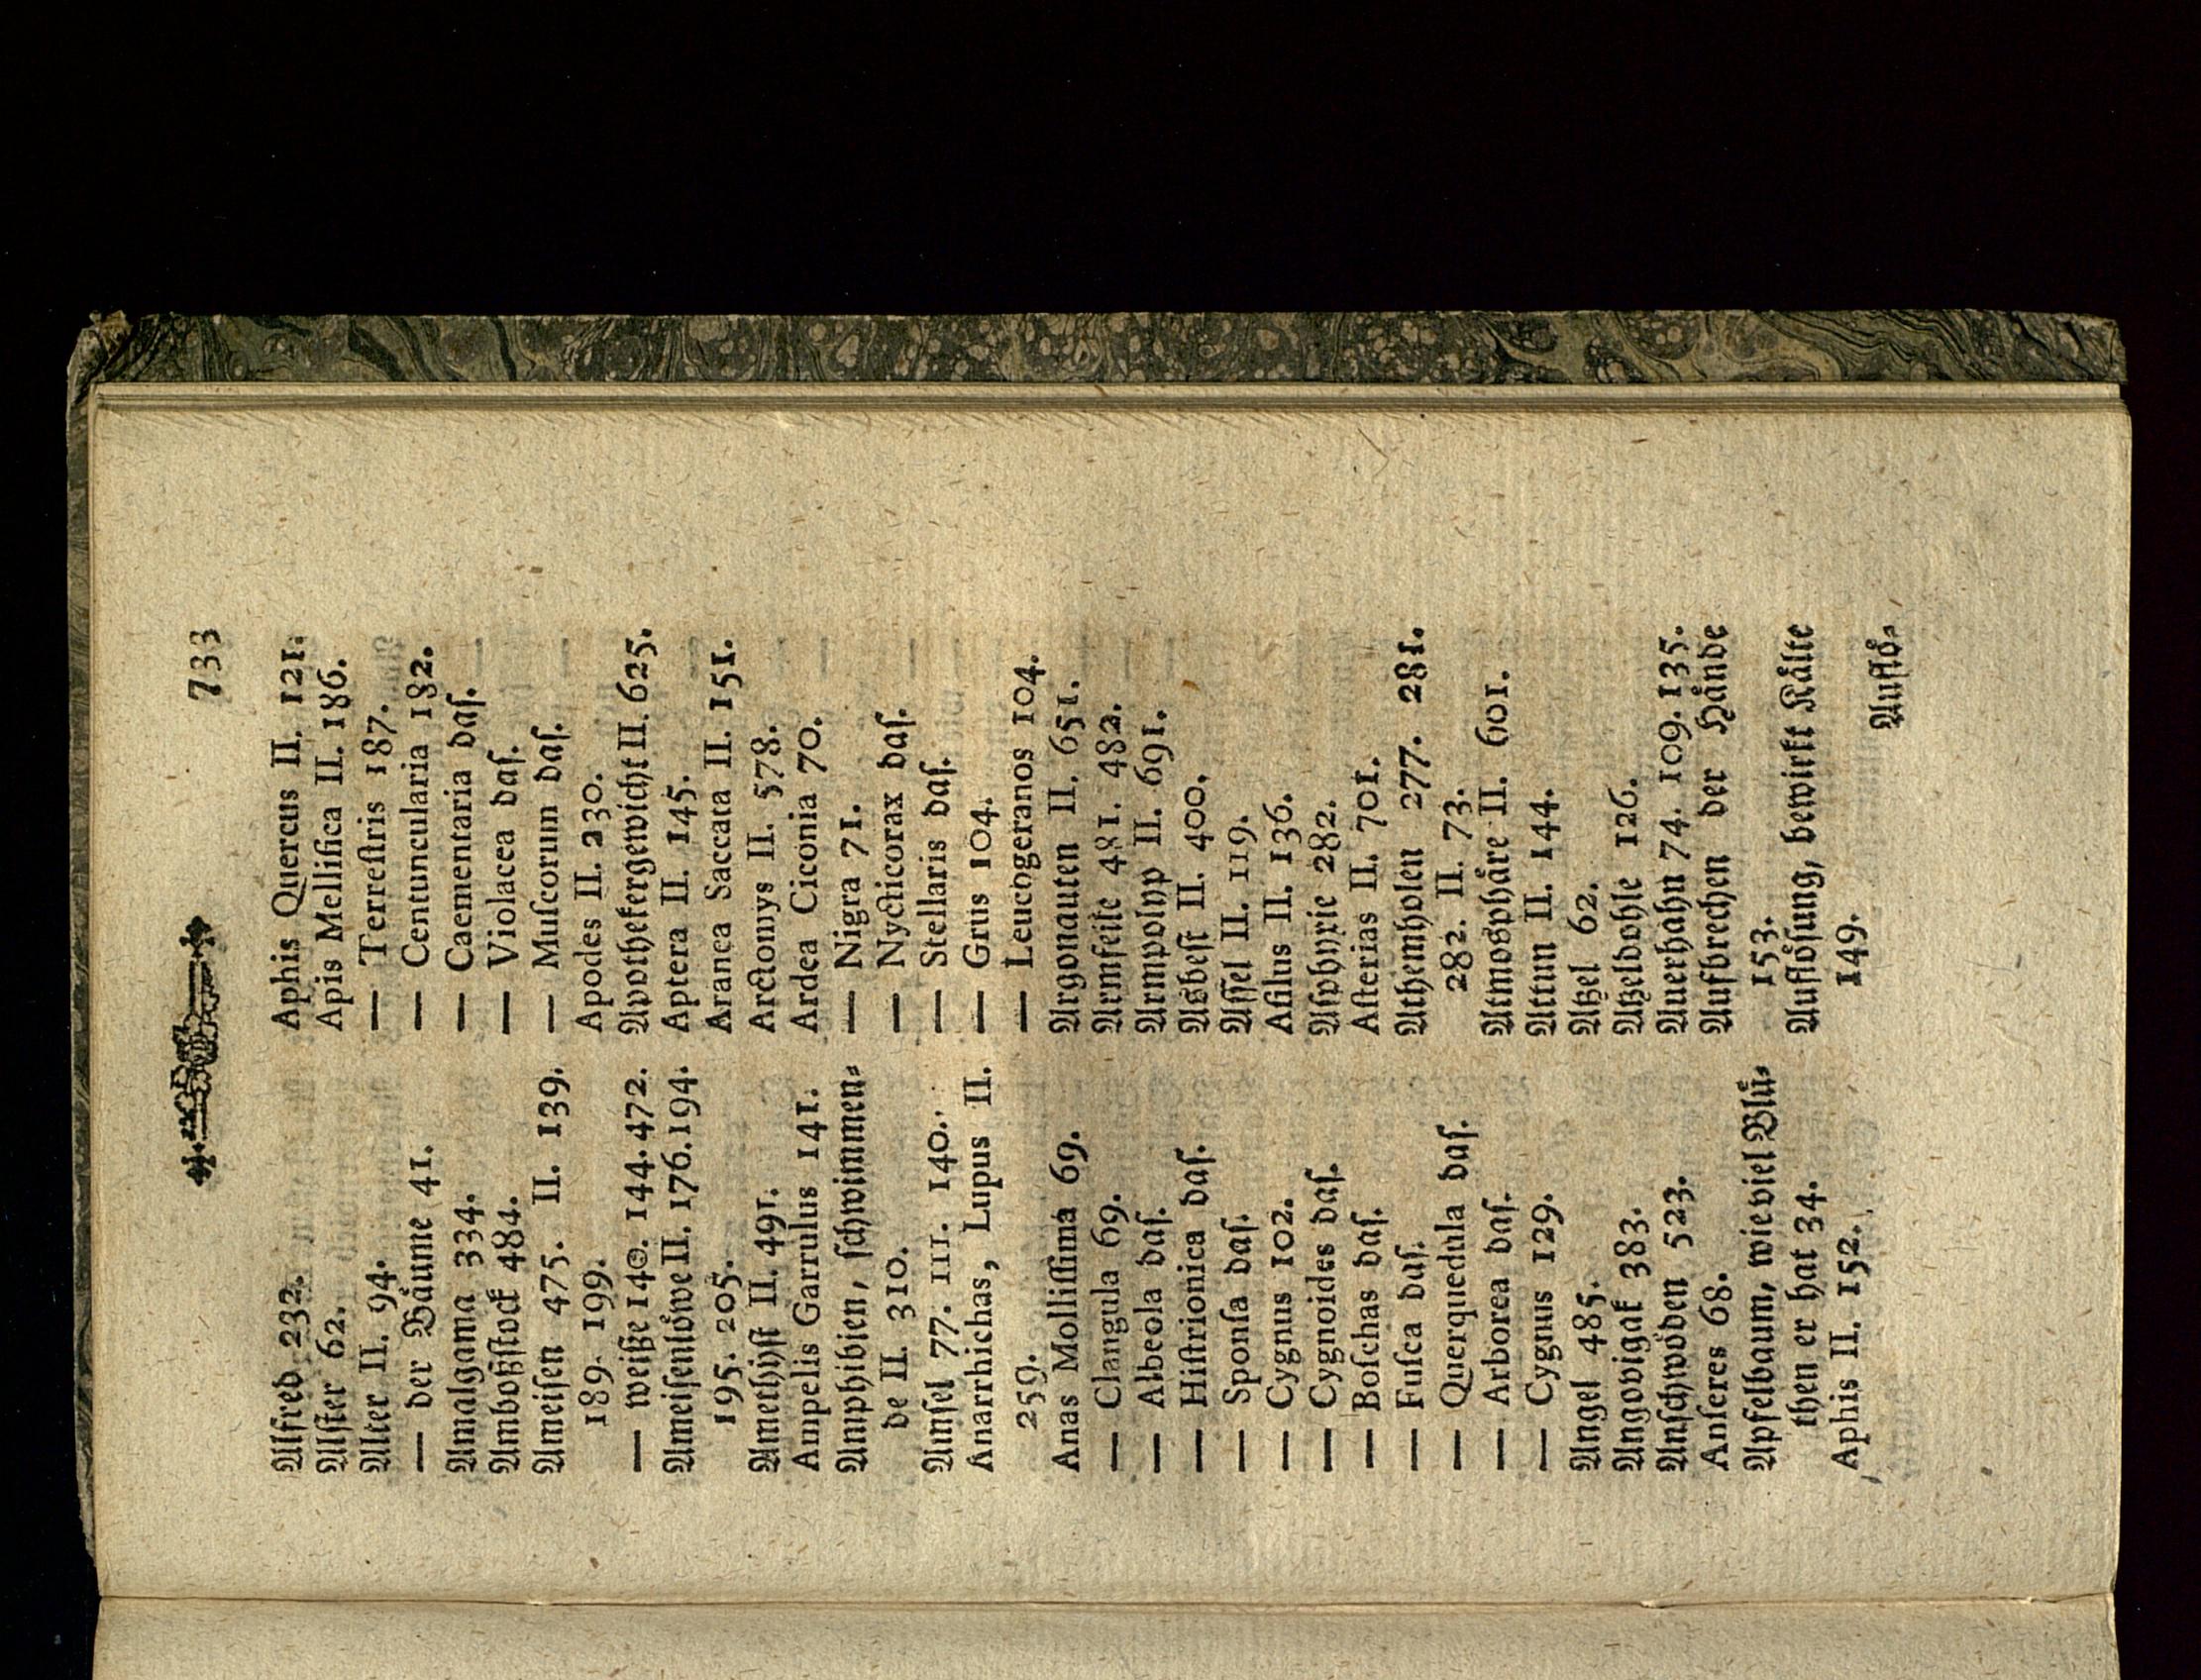 733
Alfred 232.
Alſter 62.
Alter II. 94.
— der Bäume 41.
Amalgama 334.
Amboßſtock 484.
Ameiſen 475. II. 139.
189. 199.
— weiße 140. 144. 472.
Ameiſenlöwe II. 176. 194.
195. 205.
Amethiſt II. 491.
Ampelis Garrulus 141.
Amphibien, ſchwimmen⸗
de II. 310.
Amſel 77. 111. 140.
Anarrhichas, Lupus II.
259.
Anas Molliſſima 69.
— Clangula 69.
— Albeola daſ.
— Hiſtrionica daſ.
— Sponſa daſ.
— Cygnus 102.
— Cygnoides daſ.
— Boſchas daſ.
— Fuſca daſ.
— Querquedula daſ.
— Arborea daſ.
— Cygnus 129.
Angel 485.
Angovigak 383.
Anſchwöden 523.
Anſeres 68.
Apfelbaum, wie viel Blü⸗
then er hat 34.
Aphis II. 152.
Aphis Quercus II. 121.
Apis Mellifica II. 186.
— Terreſtris 187.
— Centuncularia 182.
— Caementaria daſ.
— Violacea daſ.
— Muſcorum daſ.
Apodes II. 230.
Apothekergewicht II. 625.
Aptera II. 145.
Aranea Saccata II. 151.
Arctomys II. 578.
Ardea Ciconia 70.
— Nigra 71.
— Nycticorax daſ.
— Stellaris daſ.
— Grus 104.
— Leucogeranos 104.
Argonauten II. 651.
Armfeile 481. 482.
Armpolyp II. 691.
Asbeſt II. 400.
Aſſel II. 119.
Aſilus II. 136.
Aſphyxie 282.
Aſterias II. 701.
Athemholen 277. 281.
282. II. 73.
Atmosphäre II. 601.
Attun II. 144.
Atzel 62.
Atzeldohle 126.
Auerhahn 74. 109. 135.
Aufbrechen der Hände
153.
Auflöſung, bewirkt Kälte
149.
Auflö⸗